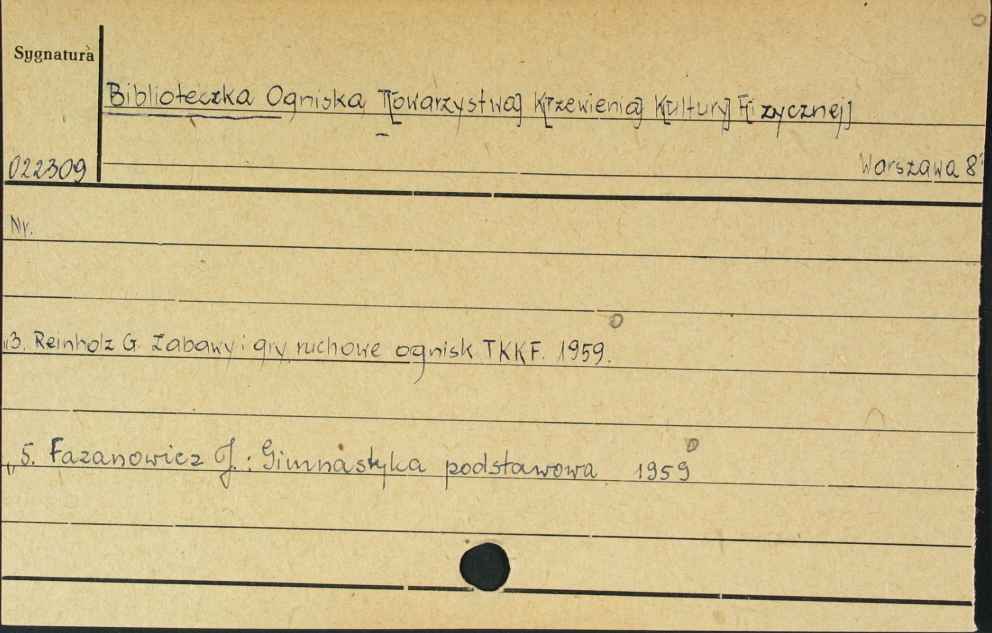 Sygnatura
Biblioteczka Ogniska T[owarzystwa] K[rzewienia] K[ultury] F[izycznej]
022309
Warszawa 8°
Nr.
"3. Reinholz G. Zabawy i gry ruchowe ognisk TKKF. 1959.
"5. Fazanowicz J.: Gimnastyka podstawowa 1959